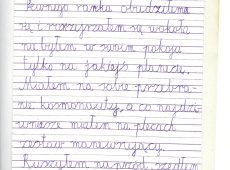 Pewnego ranka obudziłem
się i rozejrzałem się wokoło
nie byłem w swoim pokoju
tylko na jakiejś planecie.
Miałem na sobie przebra-
nie kosmonauty, a co najdzi
wniejsze miałem na plecach
zestaw manewrujący.
Ruszyłem na przód szedłem